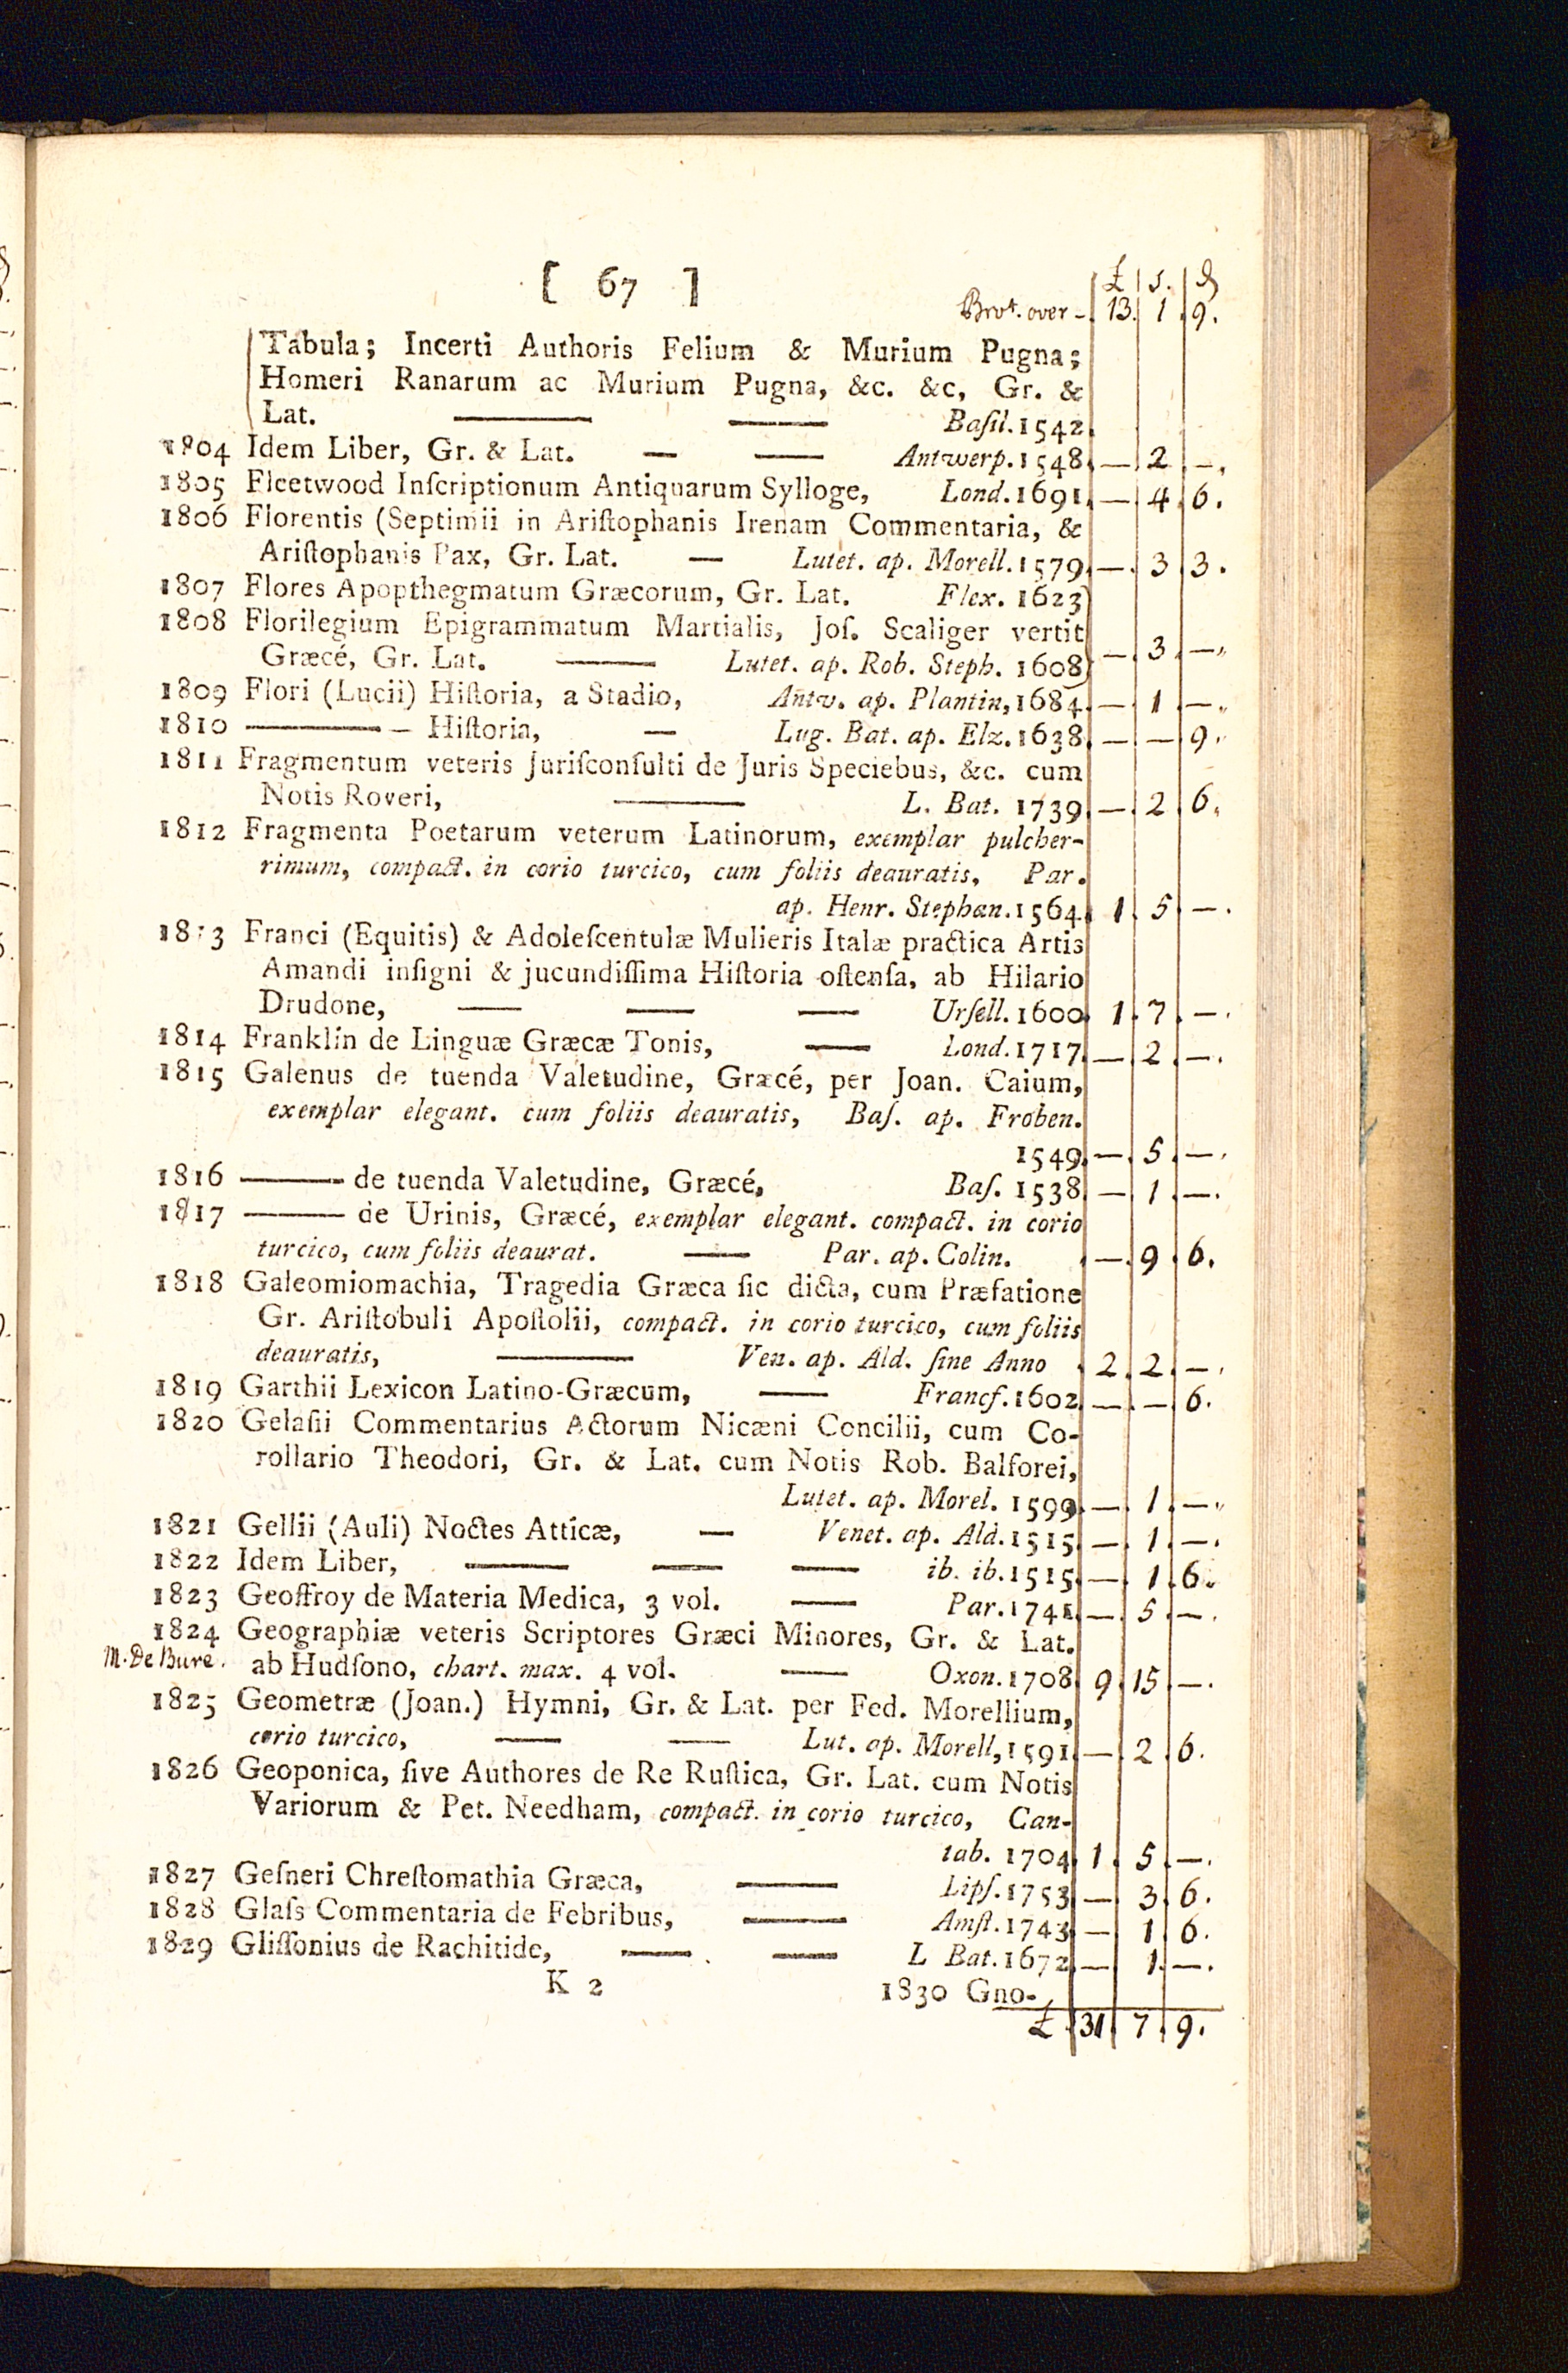 [ 67 ]
£ s. d
Brot. over - 13. 1 9.
Tabula; Incerti Authoris Felium & Murium Pugna;
Homeri Ranarum ac Murium Pugna, &c. &c, Gr. &
Lat. —— —— Baſil. 1542
1804 Idem Liber, Gr. & Lat. — — Antwerp. 1548 — 2 —.
1805 Fleetwood Inſcriptionum Antiquarum Sylloge, Lond. 1691 — 4 6.
1806 Florentis (Septimii in Ariſtophanis Irenam Commentaria, &
Ariſtophanis Pax, Gr. Lat. — Lutet. ap. Morell. 1579 — 3 3.
1807 Flores Apopthegmatum Græcorum, Gr. Lat. Flex. 1623
1808 Florilegium Epigrammatum Martialis, Joſ. Scaliger vertit
Græcé, Gr. Lat. —— Lutet. ap. Rob. Steph. 1608 — 3 —.
1809 Flori (Lucii) Hiſtoria, a Stadio, Antw. ap. Plantin, 1684 — 1 —.
1810 —— — Hiſtoria, — Lug. Bat. ap. Elz. 1638 — — 9.
1811 Fragmentum veteris Juriſconſulti de Juris Speciebus, &c. cum
Notis Roveri, —— L. Bat. 1739 — 2 6.
1812 Fragmenta Poetarum veterum Latinorum, exemplar pulcher-
rimum, compact. in corio turcico, cum foliis deauratis, Par.
ap. Henr. Stephan. 1564 1 5 —.
1813 Franci (Equitis) & Adoleſcentulæ Mulieris Italæ practica Artis
Amandi inſigni & jucundiſſima Hiſtoria oſtenſa, ab Hilario
Drudone, —— —— —— Urſell. 1600 1 7 —.
1814 Franklin de Linguæ Græcæ Tonis, —— Lond. 1717 — 2 —.
1815 Galenus de tuenda Valetudine, Græcé, per Joan. Caium,
exemplar elegant. cum foliis deauratis, Baſ. ap. Froben.
1549 — 5 —.
1816 —— de tuenda Valetudine, Græcé, Baſ. 1538 — 1 —.
1817 —— de Urinis, Græcé, exemplar elegant. compact. in corio
turcico, cum foliis deaurat. —— Par. ap. Colin. — 9 6.
1818 Galeomiomachia, Tragedia Græca ſic dicta, cum Præfatione
Gr. Ariſtobuli Apoſtolii, compact. in corio turcico, cum foliis
deauratis, —— Ven. ap. Ald. ſine Anno 2 2 —.
1819 Garthii Lexicon Latino-Græcum, —— Francſ. 1602 — — 6.
1820 Gelaſii Commentarius Actorum Nicæni Concilii, cum Co-
rollario Theodori, Gr. & Lat. cum Notis Rob. Balforei,
Lutet. ap. Morel. 1599 — 1 —.
1821 Gellii (Auli) Noctes Atticæ, — Venet. ap. Ald. 1515 — 1 —.
1822 Idem Liber, —— —— —— ib. ib. 1515 — 1 6.
1823 Geoffroy de Materia Medica, 3 vol. —— Par. 1741 — 5 —.
1824 Geographiæ veteris Scriptores Græci Minores, Gr. & Lat.
M. De Bure. ab Hudſono, chart. max. 4 vol. —— Oxon. 1708 9 15 —.
1825 Geometræ (Joan.) Hymni, Gr. & Lat. per Fed. Morellium,
corio turcico, —— —— Lut. ap. Morell, 1591 — 2 6.
1826 Geoponica, ſive Authores de Re Ruſtica, Gr. Lat. cum Notis
Variorum & Pet. Needham, compact. in corio turcico, Can-
tab. 1704 1 5 —.
1827 Geſneri Chreſtomathia Græca, —— Lipſ. 1753 — 3 6.
1828 Glaſs Commentaria de Febribus, —— Amſt. 1743 — 1 6.
1829 Gliſſonius de Rachitide, —— —— L Bat. 1672 — 1 —.
K 2 1830 Gno-
£ 31 7 9.